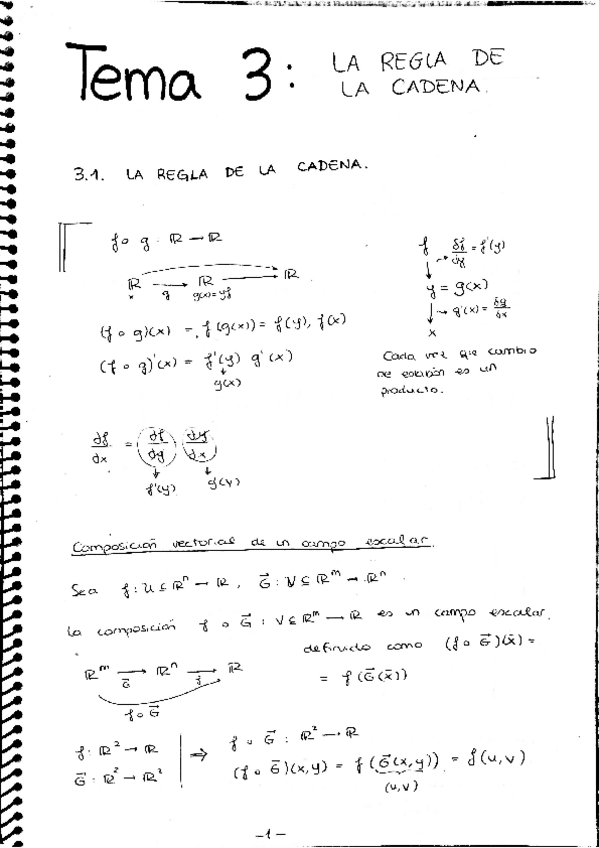 Tema 3: LA REGLA DE
LA CADENA.
3.1. LA REGLA DE LA CADENA.
f∘g : ℝ → ℝ
ℝ → ℝ → ℝ
x g g(x)=y f
(f∘g)(x) = f(g(x)) = f(y), f(x)
(f∘g)'(x) = f'(y) g'(x)
↓
g(x)
f → δf/dy = f'(y)
↓
y = g(x)
↓ → g'(x) = δg/δx
x
Cada vez que cambio
de escalón es un
producto.
df/dx = df/dy dy/dx
↓ ↓
f'(y) g'(x)
Composición vectorial de un campo escalar.
Sea f: U ⊆ ℝⁿ → ℝ, G⃗: V ⊆ ℝᵐ → ℝⁿ
la composición f∘G⃗ : V ⊆ ℝᵐ → ℝ es un campo escalar
definido como (f∘G⃗)(x̄) =
= f(G⃗(x̄))
ℝᵐ → ℝⁿ → ℝ
G⃗ f
f∘G⃗
f: ℝ² → ℝ
G⃗: ℝ² → ℝ²
⇒ f∘G⃗ : ℝ² → ℝ
(f∘G⃗)(x,y) = f(G⃗(x,y)) = f(u,v)
(u,v)
-1-